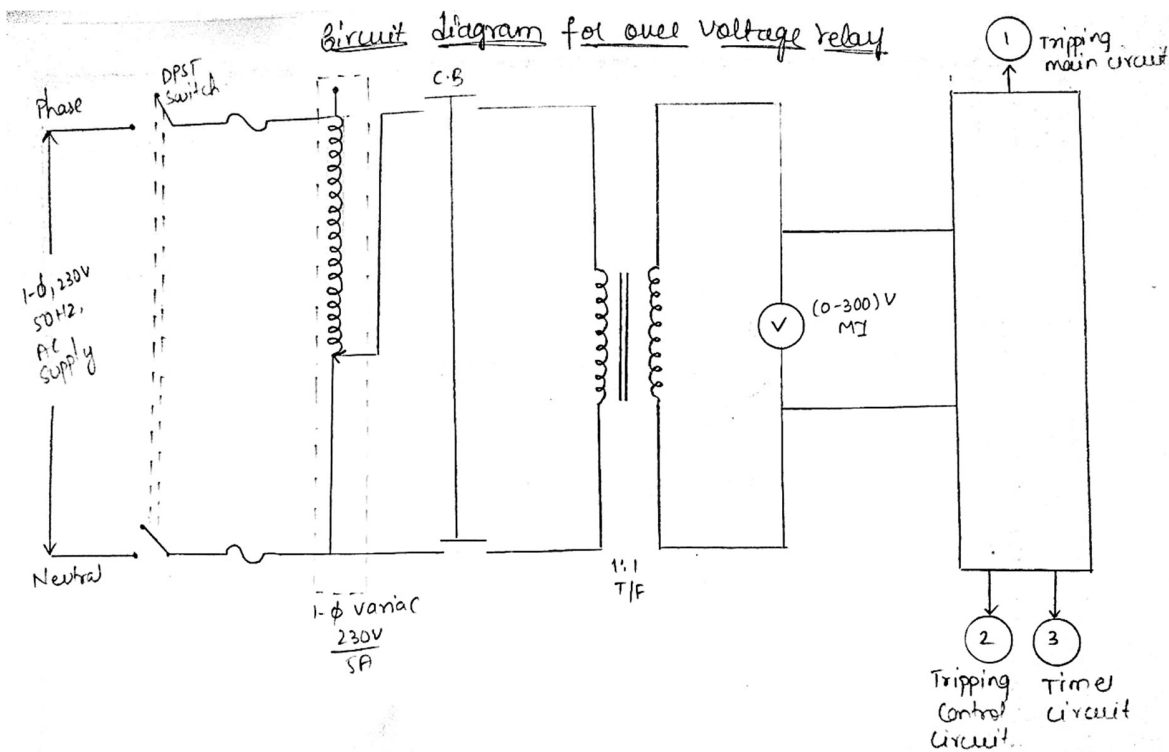 Circuit diagram for over Voltage relay
1
Tripping
main circuit
DPST
Switch
C.B
Phase
1-ϕ, 230V
50HZ,
AC
Supply
(0-300)V
MI
V
Neutral
1:1
T/F
1-ϕ variac
230V
5A
2
3
Tripping
Control
circuit.
Timer
circuit